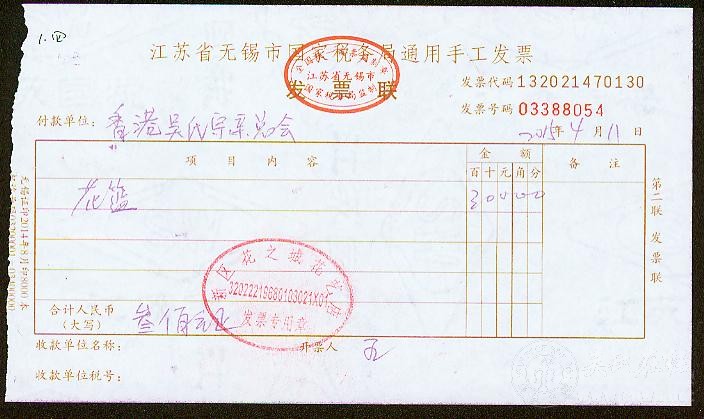 1.四
江苏省无锡市国家税务局通用手工发票
发票联
全国统一发票监制章
江苏省无锡市
国家税务局监制
发票代码132021470130
发票号码03388054
付款单位：香港吴氏宗亲总会
2015年4月11日
项目内容 金额 备注
百十元角分
花篮 30000
第二联 发票联
新区花之城花艺店
发票专用章
合计人民币
(大写) 叁佰元正
收款单位名称： 开票人
收款单位税号：